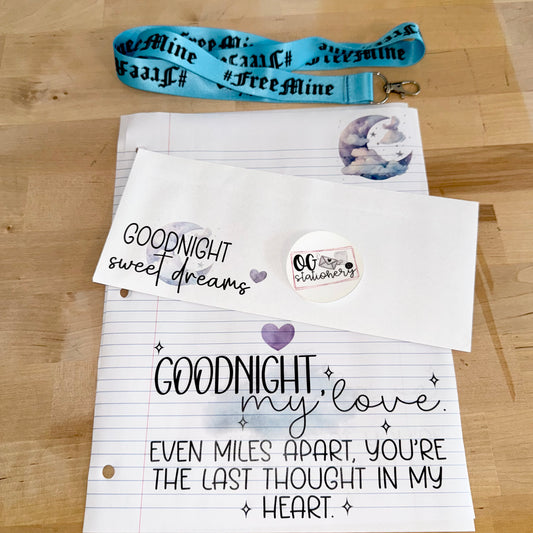 #FreeMine
#FreeMine
#FreeMine
#FreeMine
GOODNIGHT
sweet dreams
OG
stationery
GOODNIGHT,
my love.
EVEN MILES APART, YOU'RE
THE LAST THOUGHT IN MY
HEART.